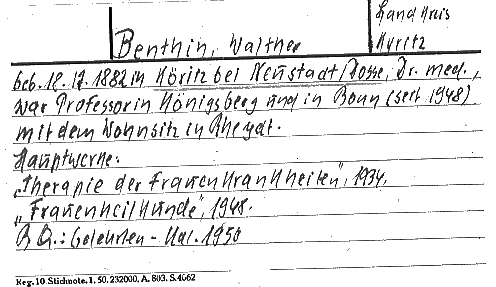 Land Kreis
Kyritz
Benthin, Walther
Geb. 18.12.1882 in Köritz bei Neustadt/Dosse, Dr. med.,
war Professor in Königsberg und in Bonn (seit 1948)
mit dem Wohnsitz in Rheydt.
Hauptwerke:
„Therapie der Frauenkrankheiten", 1934,
„Frauenheilkunde", 1948.
BQ.: Gelehrten-Kal. 1950
Reg. 10 Stichnote. 1. 50. 232000. A. 803. S.4062